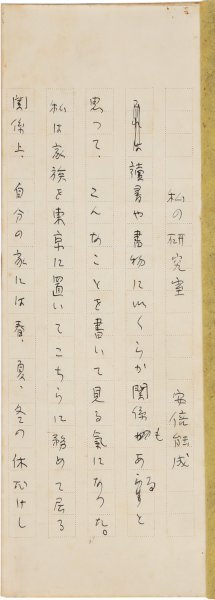 私の研究室
安倍能成
讀書や書物にいくらか関係もあると
思つて、こんなことを書いて見る氣になつた。
私は家族を東京に置いてこちらに務めて居る
関係上、自分の家には春、夏、冬の休だけし